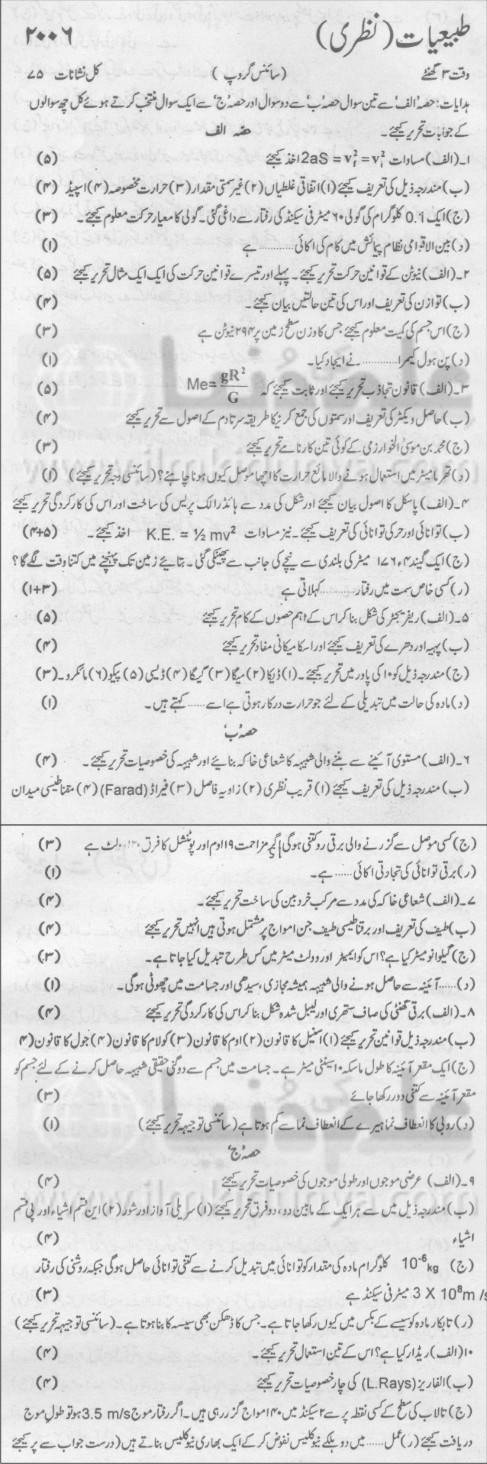 طبیعیات (نظری) ۲۰۰۶
وقت ۳ گھنٹے (سائنس گروپ) کل نشانات ۷۵
ہدایات: حصہ 'الف' سے تین سوال حصہ 'ب' سے دو سوال اور حصہ 'ج' سے ایک سوال منتخب کرتے ہوئے کل چھ سوالوں
کے جوابات تحریر کیجئے۔ حصہ الف
۱۔ (الف) مساوات 2aS = v²f = v²i اخذ کیجئے (۵)
(ب) مندرجہ ذیل کی تعریف کیجئے (۱) اتفاقی غلطیاں (۲) غیر سمتی مقدار (۳) حرارت مخصوصہ (۴) اسپیڈ (۴)
(ج) ایک 0.1 کلوگرام کی گولی ۶۰ میٹر فی سیکنڈ کی رفتار سے داغی گئی۔ گولی کا معیار حرکت معلوم کیجئے۔ (۳)
(د) بین الاقوامی نظام پیمائش میں کام کی اکائی ......... ہے (۱)
۲۔ (الف) نیوٹن کے قوانین حرکت تحریر کیجئے۔ پہلے اور تیسرے قوانین حرکت کی ایک ایک مثال تحریر کیجئے (۵)
(ب) توازن کی تعریف اور اس کی تین حالتیں بیان کیجئے۔ (۴)
(ج) اس جسم کی کمیت معلوم کیجئے جس کا وزن سطح زمین پر ۲۹۴ نیوٹن ہے (۳)
(د) پن ہول کیمرا ......... نے ایجاد کیا۔ (۱)
۳۔ (الف) قانون تجاذب تحریر کیجئے اور ثابت کیجئے کہ Me= gR²/G (۵)
(ب) حاصل ویکٹر کی تعریف اور سمتوں کی جمع کرنے کا طریقہ سر تا دم کے اصول سے تحریر کیجئے (۴)
(ج) محمد بن موسیٰ الخوارزمی کے کوئی تین کارنامے تحریر کیجئے (۳)
(د) تھرمامیٹر میں استعمال ہونے والا مائع حرارت کا اچھا موصل کیوں ہونا چاہئے؟ (سائنسی وجہ تحریر کیجئے) (۱)
۴۔ (الف) پاسکل کا اصول بیان کیجئے اور شکل کی مدد سے ہائڈرالک پریس کی ساخت اور اس کی کارکردگی تحریر کیجئے
(ب) توانائی اور حرکی توانائی کی تعریف کیجئے۔ نیز مساوات K.E. = ½ mv² اخذ کیجئے۔ (۴+۵)
(ج) ایک گیند ۱۷۶ء۴ میٹر کی بلندی سے نیچے کی جانب سے پھینکی گئی۔ بتائیے زمین تک پہنچنے میں کتنا وقت لگے گا؟
(ر) کسی خاص سمت میں رفتار ......... کہلاتی ہے (۱+۳)
۵۔ (الف) ریفریجریٹر کی شکل بنا کر اس کے اہم حصوں کے کام تحریر کیجئے (۵)
(ب) پہیہ اور دھرے کی تعریف کیجئے اور اسکا میکانی مفاد تحریر کیجئے (۴)
(ج) مندرجہ ذیل کو ۱۰ کی پاور میں تحریر کیجئے۔ (۱) ڈیکا (۲) میگا (۳) گیگا (۴) ڈیسی (۵) پیکو (۶) مائکرو۔ (۳)
(د) مادہ کی حالت میں تبدیلی کے لئے جو حرارت درکار ہوتی ہے اسے ...... کہتے ہیں۔ (۱)
حصہ 'ب'
۶۔ (الف) مستوی آئینے سے بننے والی شبیہہ کا شعاعی خاکہ بنائیے اور شبیہہ کی خصوصیات تحریر کیجئے۔ (۴)
(ب) مندرجہ ذیل کی تعریف کیجئے (۱) قریب نظری (۲) زاویہ فاصل (۳) فیراڈ (Farad) (۴) مقناطیسی میدان
(ج) کسی موصل سے گزرنے والی برقی رو کتنی ہوگی اگر مزاحمت ۱۹ اوم اور پوٹینشل کا فرق وولٹ ہے (۳)
(ر) برقی توانائی کی تجارتی اکائی ...... ہے۔ (۱)
۷۔ (الف) شعاعی خاکہ کی مدد سے مرکب خردبین کی ساخت تحریر کیجئے۔ (۴)
(ب) طیف کی تعریف اور برقناطیسی طیف جن امواج پر مشتمل ہوتی ہیں انہیں تحریر کیجئے (۴)
(ج) گیلوانومیٹر کیا ہے؟ اس کو ایمیٹر اور وولٹ میٹر میں کس طرح تبدیل کیا جاتا ہے۔ (۳)
(د) ...... آئینہ سے حاصل ہونے والی شبیہہ ہمیشہ مجازی، سیدھی اور جسامت میں چھوٹی ہوگی۔ (۱)
۸۔ (الف) برقی گھنٹی کی صاف ستھری اور لیبل شدہ شکل بنا کر اس کی کارکردگی تحریر کیجئے (۴)
(ب) مندرجہ ذیل قوانین تحریر کیجئے (۱) اسنیل کا قانون (۲) اوم کا قانون (۳) کولام کا قانون (۴) جول کا قانون (۴
(ج) ایک مقعر آئینہ کا طول ماسکہ ۱۰ سینٹی میٹر ہے۔ جسامت میں جسم سے دو گنی حقیقی شبیہہ حاصل کرنے کے لئے جسم کو
مقعر آئینہ سے کتنی دور رکھا جائے (۳)
(د) روبی کا انعطاف نما ہیرے کے انعطاف نما سے کم ہوتا ہے (سائنسی توجیہہ تحریر کیجئے) (۱)
حصہ 'ج'
۹۔ (الف) عرضی موجوں اور طولی موجوں کی خصوصیات تحریر کیجئے (۴)
(ب) مندرجہ ذیل میں سے ہر ایک کے مابین دو، دو فرق تحریر کیجئے (۱) سریلی آواز اور شور (۲) این قسم اشیاء اور پی قسم
اشیاء (۴)
(ج) 10⁻⁶kg کلوگرام مادہ کی مقدار کو توانائی میں تبدیل کرنے سے کتنی توانائی حاصل ہوگی جبکہ روشنی کی رفتار
3 X 10⁸m/s میٹر فی سیکنڈ ہے (۳)
(ر) تابکار مادہ کو سیسے کے بکس میں کیوں رکھا جاتا ہے۔ جس کا ڈھکن بھی سیسہ کا بنا ہوتا ہے۔ (سائنسی توجیہہ تحریر کیجئے)
۱۰۔ (الف) ریڈار کیا ہے؟ اس کے تین استعمال تحریر کیجئے۔ (۴)
(ب) الفا ریز (L.Rays) کی چار خصوصیات تحریر کیجئے (۴)
(ج) تالاب کی سطح کے کسی نقطہ پر سے ۲ سیکنڈ میں ۱۴۰ امواج گزر رہی ہیں۔ اگر رفتار موج 3.5 m/s ہو تو طول موج
دریافت کیجئے (ر) عمل ...... میں دو ہلکے نیوکلیس نفوذ کر کے ایک بھاری نیوکلیس بناتے ہیں (درست جواب سے پر کیجئے
علم کی دنیا
www.ilmkidunya.com